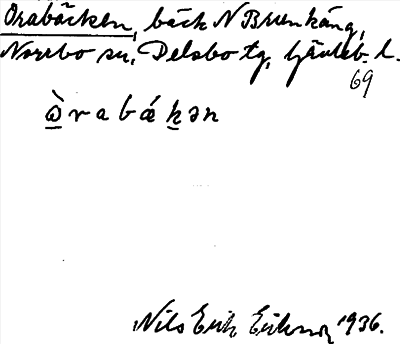 Orabäcken, bäck N Brunkäng,
Norrbo sn, Delsbo tg, Gävleb. l.
69
ὼ̲rabǽk̲ən
Nils Erik Erikson 1936.